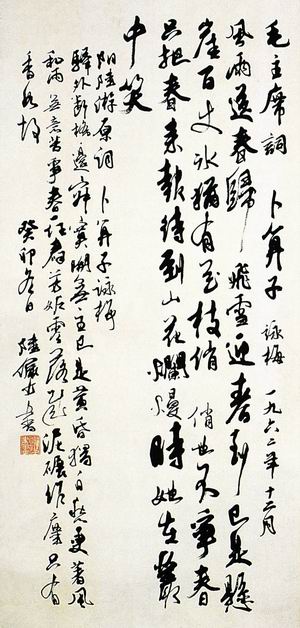 毛主席詞 卜算子 詠梅 一九六二年十二月
風雨送春歸飛雪迎春到已是懸
崖百丈冰猶有花枝俏俏也不爭春
只把春來報待到山花爛熳時她在叢
中笑
附陸游原詞 卜算子詠梅
驛外斷橋邊寂寞開無主已是黃昏獨自愁更著風
和雨無意苦爭春一任群芳妒零落成泥碾作塵只有
香如故 癸卯冬日 陸儼少書